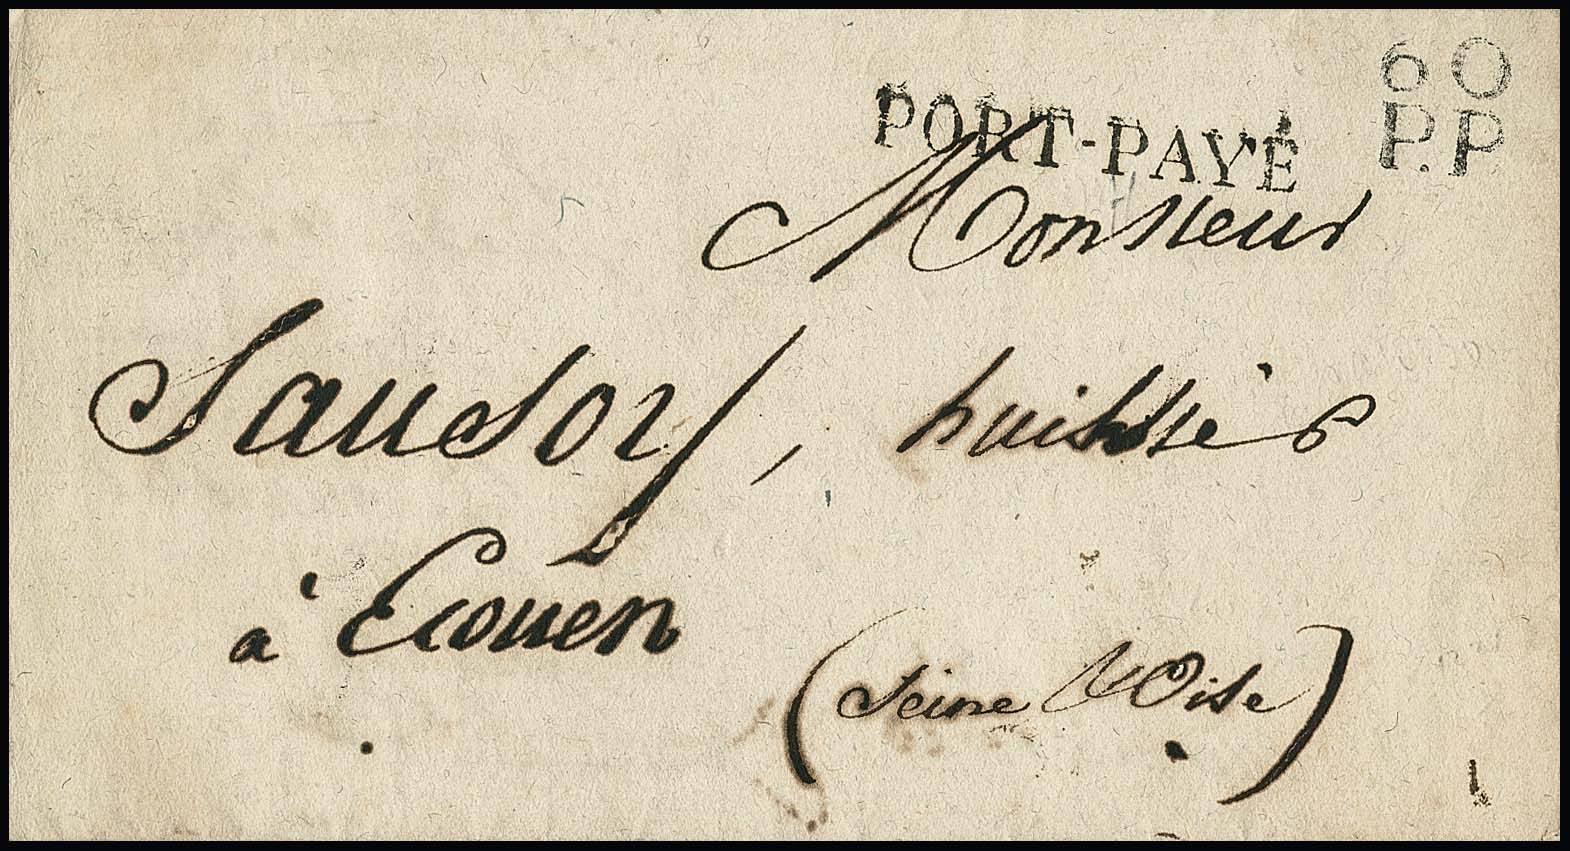 60
P.P
PORT-PAYÉ
Monsieur
Sausoy, huissier
à Ecouen
(Seine & Oise)